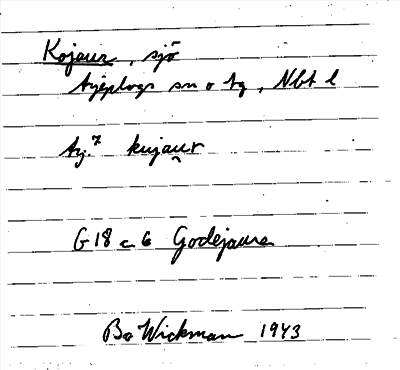 Kojaur, sjö
Arjeplogs sn o tg, Nbt l
Arj.7 kujau̯r
G18 c 6 Godejaure
Bo Wickman 1943